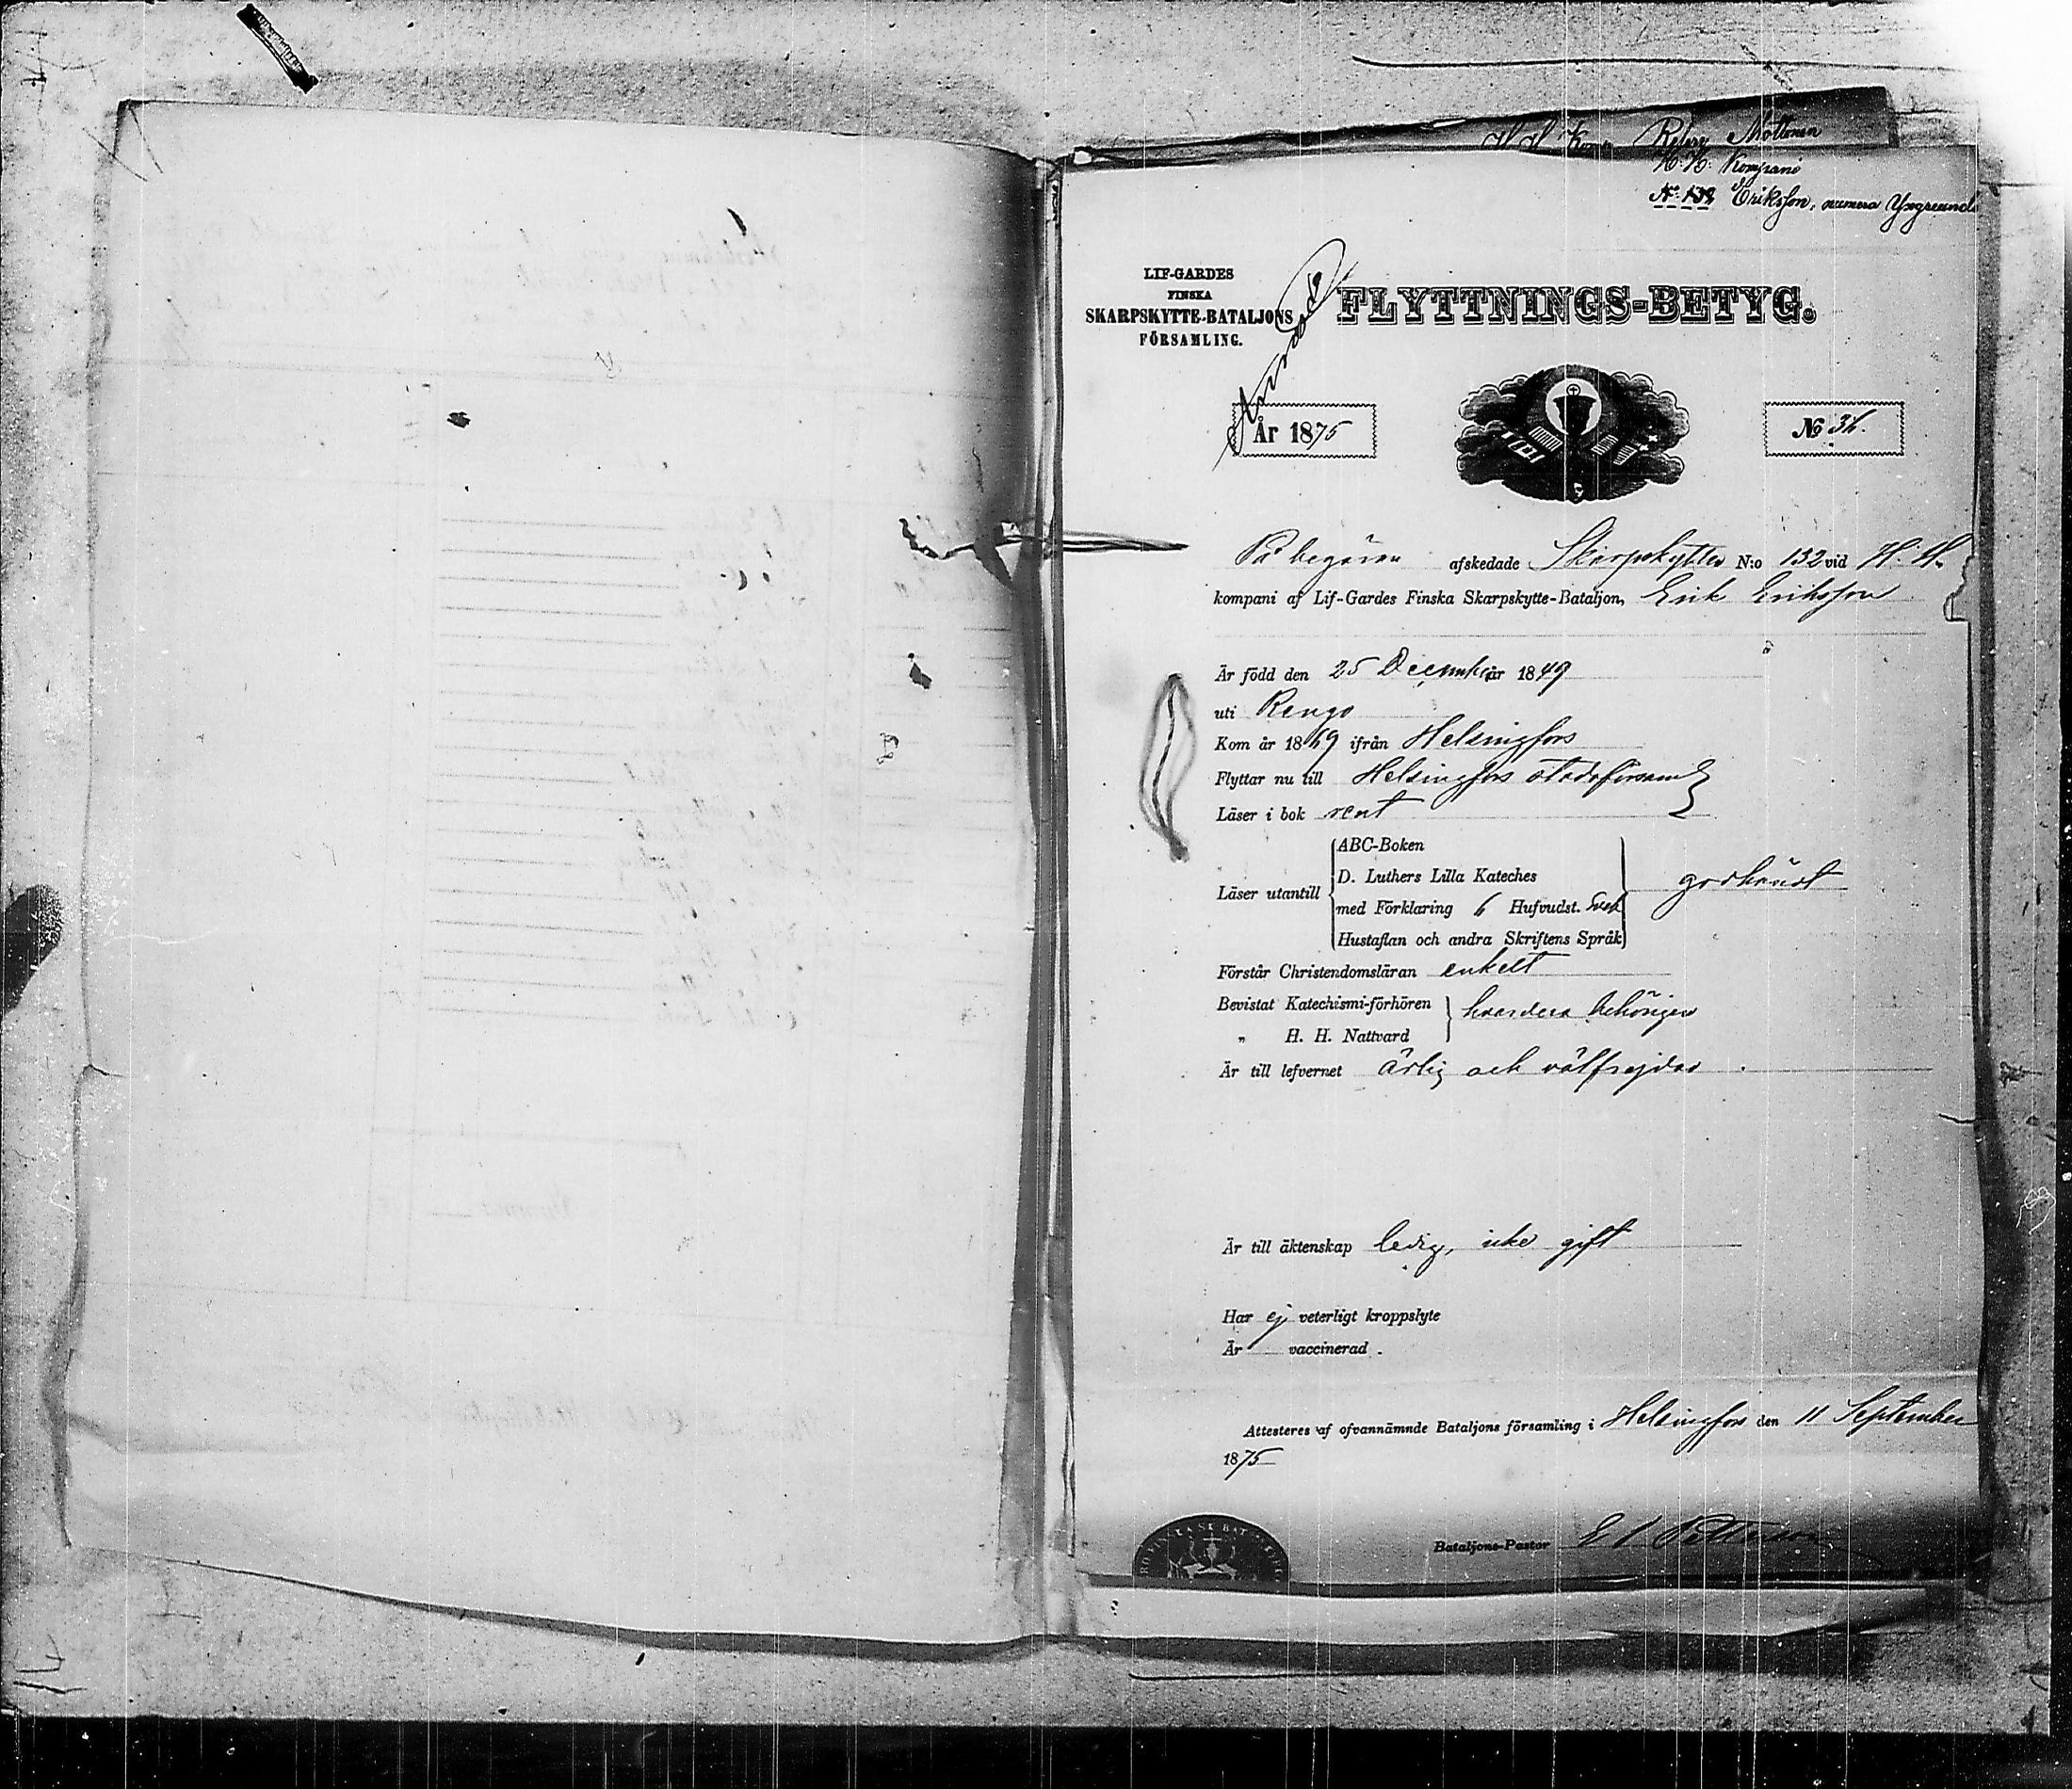 Möttönen
H. H. Kompani
No 132 Eriksson, numera
LIF-GARDES
FINSKA
SKARPSKYTTE-BATALJONS
FÖRSAMLING.
FLYTTNINGS-BETYG.
År 1875
№ 34.
På begäran afskedade Skarpskytten N:o 132 vid H. H.
kompani af Lif-Gardes Finska Skarpskytte-Bataljon, Erik Eriksson
Är född den 25 December år 1849
uti Rengo
Kom år 1869 ifrån Helsingfors
Flyttar nu till Helsingfors stadsförsaml
Läser i bok rent
Läser utantill
ABC-Boken
D. Luthers Lilla Kateches
med Förklaring 6 Hufvudst. Sveb
Hustaflan och andra Skriftens Språk
godkändt
Förstår Christendomsläran enkelt
Bevistat Katechismi-förhören
„ H. H. Nattvard
hvardera behörigen
Är till lefvernet ärlig och välfrejdad
Är till äktenskap ledig, icke gift
Har ej veterligt kroppslyte
Är vaccinerad.
Attesteras af ofvannämnde Bataljons församling i Helsingfors den 11 September
1875
Bataljons-Pastor